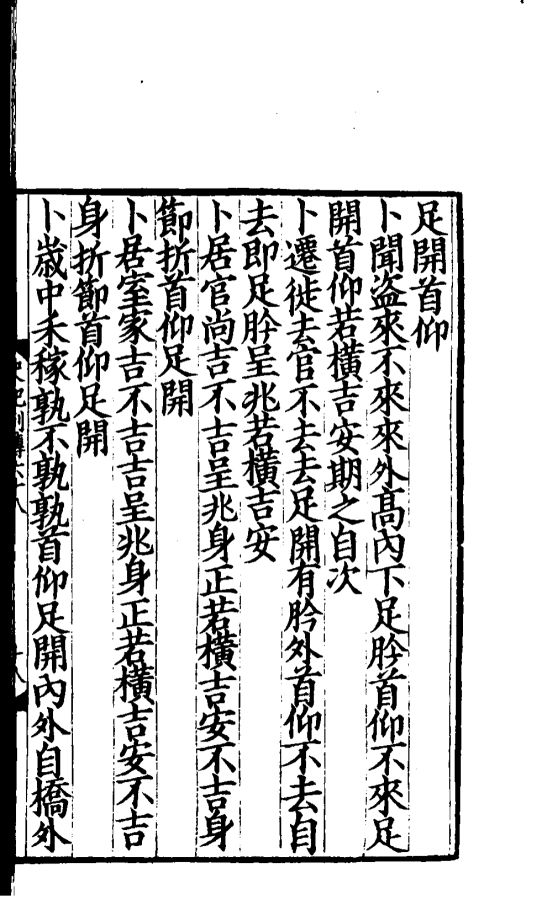 足開首仰
卜聞盜來不來來外高內下足肣首仰不來足
開首仰若橫吉安期之自次
卜遷徙去官不去去足開有肣外首仰不去自
去即足肣呈兆若橫吉安
卜居官尚吉不吉呈兆身正若橫吉安不吉身
節折首仰足開
卜居室家吉不吉吉呈兆身正若橫吉安不吉
身折節首仰足開
卜歲中禾稼孰不孰孰首仰足開內外自橋外